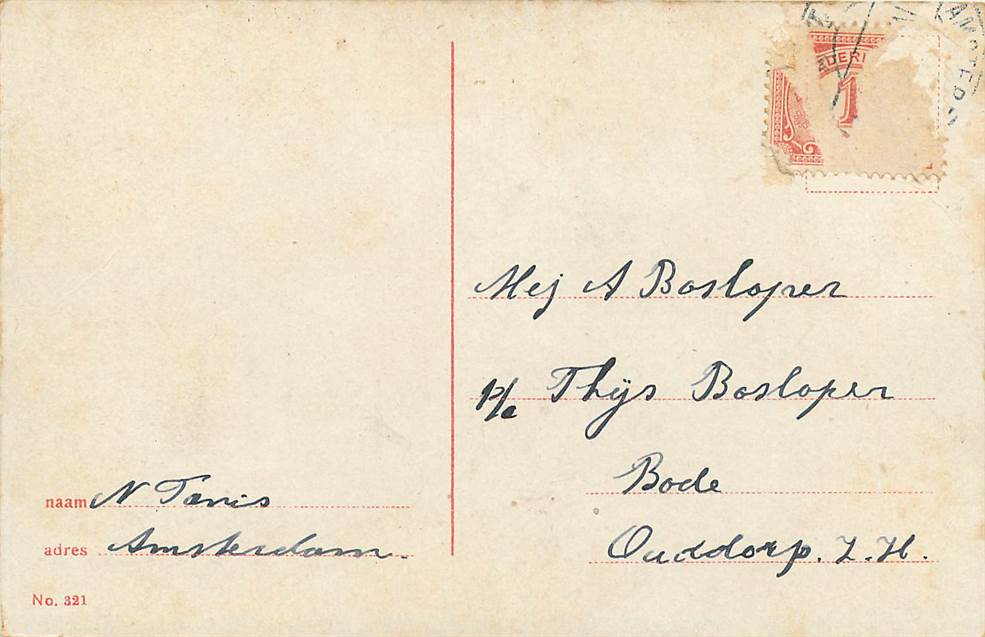 AMSTER
EDERL
1
Mej A Bosloper
p/a Thijs Bosloper
Bode
Ouddorp. Z.H.
naam N Tanis
adres Amsterdam.
No. 321